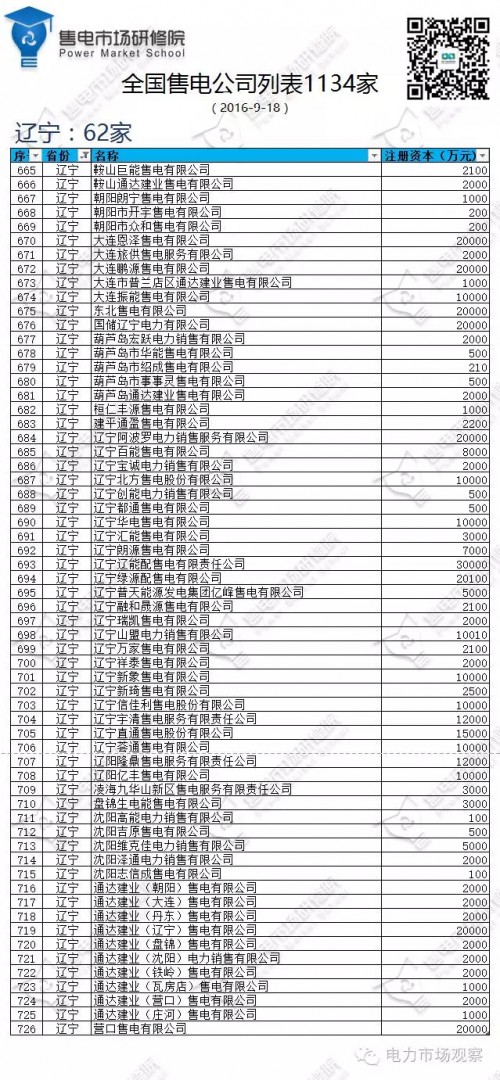 售电市场研修院
Power Market School
全国售电公司列表1134家
（2016-9-18）
辽宁：62家
序 省份 名称 注册资本（万元）
665 辽宁 鞍山巨能售电有限公司 2100
666 辽宁 鞍山通达建业售电有限公司 2000
667 辽宁 朝阳朗宁售电有限公司 1000
668 辽宁 朝阳市开宇售电有限公司 200
669 辽宁 朝阳市众和售电有限公司 200
670 辽宁 大连恩泽售电有限公司 20000
671 辽宁 大连旅供售电服务有限公司 2000
672 辽宁 大连鹏源售电有限公司 20000
673 辽宁 大连市普兰店区通达建业售电有限公司 1000
674 辽宁 大连振能售电有限公司 10000
675 辽宁 东北售电有限公司 20000
676 辽宁 国储辽宁电力有限公司 20000
677 辽宁 葫芦岛宏跃电力销售有限公司 2000
678 辽宁 葫芦岛市华能售电有限公司 500
679 辽宁 葫芦岛市绍成售电有限公司 210
680 辽宁 葫芦岛市事事灵售电有限公司 500
681 辽宁 葫芦岛通达建业售电有限公司 2000
682 辽宁 桓仁丰源售电有限公司 1000
683 辽宁 建平通盈售电有限公司 2200
684 辽宁 辽宁阿波罗电力销售服务有限公司 20000
685 辽宁 辽宁百能售电有限公司 8000
686 辽宁 辽宁宝诚电力销售有限公司 2000
687 辽宁 辽宁北方售电股份有限公司 10000
688 辽宁 辽宁创能电力销售有限公司 500
689 辽宁 辽宁都通售电有限公司 500
690 辽宁 辽宁华电售电有限公司 10000
691 辽宁 辽宁汇能售电有限公司 3000
692 辽宁 辽宁朗源售电有限公司 7000
693 辽宁 辽宁辽能配售电有限责任公司 30000
694 辽宁 辽宁绿源配售电有限公司 20100
695 辽宁 辽宁普天能源发电集团亿峰售电有限公司 5000
696 辽宁 辽宁融和晟源售电有限公司 2100
697 辽宁 辽宁瑞凯售电有限公司 2000
698 辽宁 辽宁山盟电力销售有限公司 10010
699 辽宁 辽宁万家售电有限公司 2100
700 辽宁 辽宁祥泰售电有限公司 2000
701 辽宁 辽宁新象售电有限公司 10000
702 辽宁 辽宁新琦售电有限公司 2500
703 辽宁 辽宁信佳利售电股份有限公司 10000
704 辽宁 辽宁宇清售电服务有限责任公司 12000
705 辽宁 辽宁直通售电股份有限公司 15000
706 辽宁 辽宁荟通售电有限公司 10000
707 辽宁 辽阳隆鼎售电服务有限责任公司 12000
708 辽宁 辽阳亿丰售电有限公司 10000
709 辽宁 凌海九华山新区售电服务有限责任公司 3000
710 辽宁 盘锦生电能售电有限公司 3000
711 辽宁 沈阳高能电力销售有限公司 100
712 辽宁 沈阳吉原售电有限公司 500
713 辽宁 沈阳维克佳电力销售有限公司 5000
714 辽宁 沈阳泽通电力销售有限公司 2000
715 辽宁 沈阳志信成售电有限公司 100
716 辽宁 通达建业（朝阳）售电有限公司 2000
717 辽宁 通达建业（大连）售电有限公司 2000
718 辽宁 通达建业（丹东）售电有限公司 2000
719 辽宁 通达建业（辽宁）售电有限公司 20000
720 辽宁 通达建业（盘锦）售电有限公司 2000
721 辽宁 通达建业（沈阳）电力销售有限公司 2000
722 辽宁 通达建业（铁岭）售电有限公司 2000
723 辽宁 通达建业（瓦房店）售电有限公司 1000
724 辽宁 通达建业（营口）售电有限公司 2000
725 辽宁 通达建业（庄河）售电有限公司 1000
726 辽宁 营口售电有限公司 20000
电力市场观察